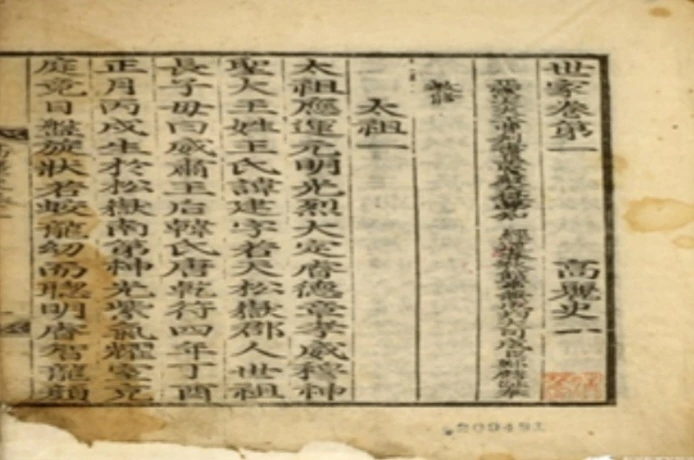 世家卷第一 高麗史一
教修
太祖一
太祖應運元明光烈大定睿德章孝威穆神
聖大王姓王氏諱建字若天松嶽郡人世祖
長子母曰威肅王后韓氏唐乾符四年丁酉
正月丙戌生於松嶽南第神光紫氣耀室充
庭竟日盤旋狀若蛟龍幼而聰明睿智龍顔
209491